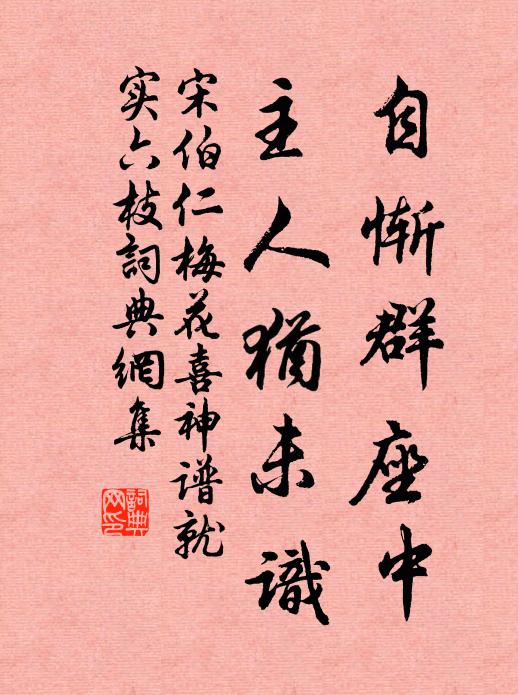 自惭群座中
主人猶未識
宋伯仁梅花喜神谱就
实六枝詞典網集
詞典网印